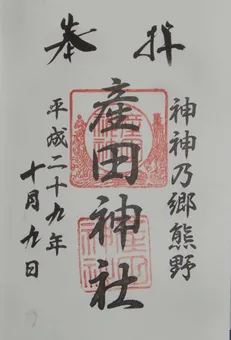 奉拝
神神乃郷熊野
産田神社
平成二十九年
十月九日